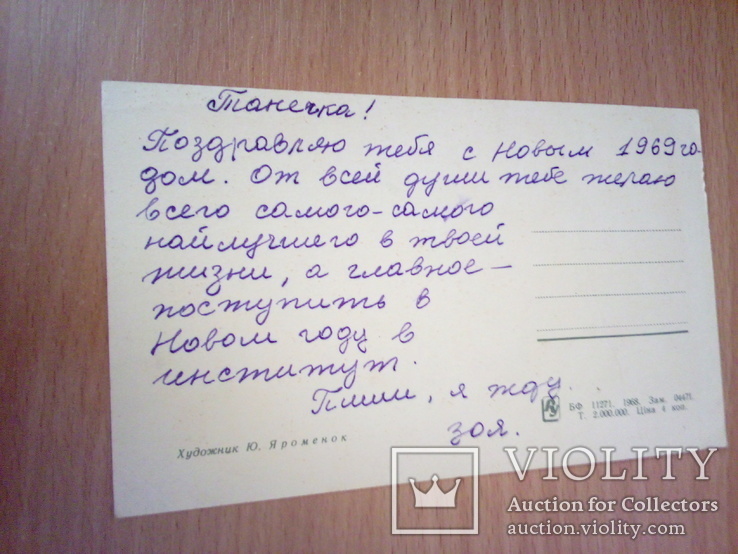 Танечка!
Поздравляю тебя с Новым 1969 го-
дом. От всей души тебе желаю
всего самого-самого
найлучшего в твоей
жизни, а главное –
поступить в
Новом году в
институт.
Пиши, я жду.
Зоя.
БФ 11271. 1968. Зам. 04471.
Т. 2.000.000. Ціна 4 коп.
Художник Ю. Яроменок
VIOLITY
Auction for Collectors
auction.violity.com